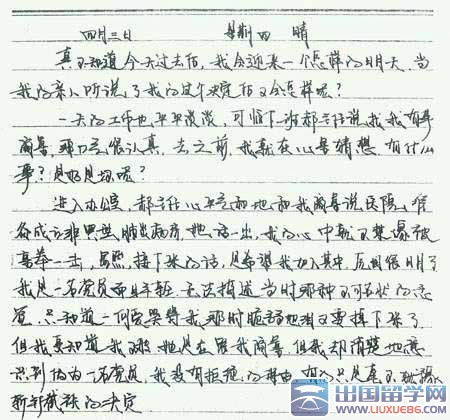 四月三日 星期四 晴
真不知道今天过去后,我会迎来一个怎样的明天,当
我的亲人听说了我的这个决定后又会怎样呢?
一天的工作也平平淡淡,可临下班都主任说找我有事
商量,那口气很认真,去之前,我就在心里猜想有什么
事?是好是坏呢?
进入办公室,都主任心平气和地和我商量说医院准
备成立非典型肺炎病房,她话一出,我的心中就不禁像被
一击,虽然,接下来的话,是希望我加入其中,原因很明了
我是一名党员而且年轻,无法描述当时那种不可名状的感
觉,只知道一 我那时脆弱地泪又要掉下来了
但我真知道 她是在跟我商量,但我却清楚地意
识到作为一名党员,我没有拒绝的理由 有的只是
的决定
出国留学网
www.liuxue86.com